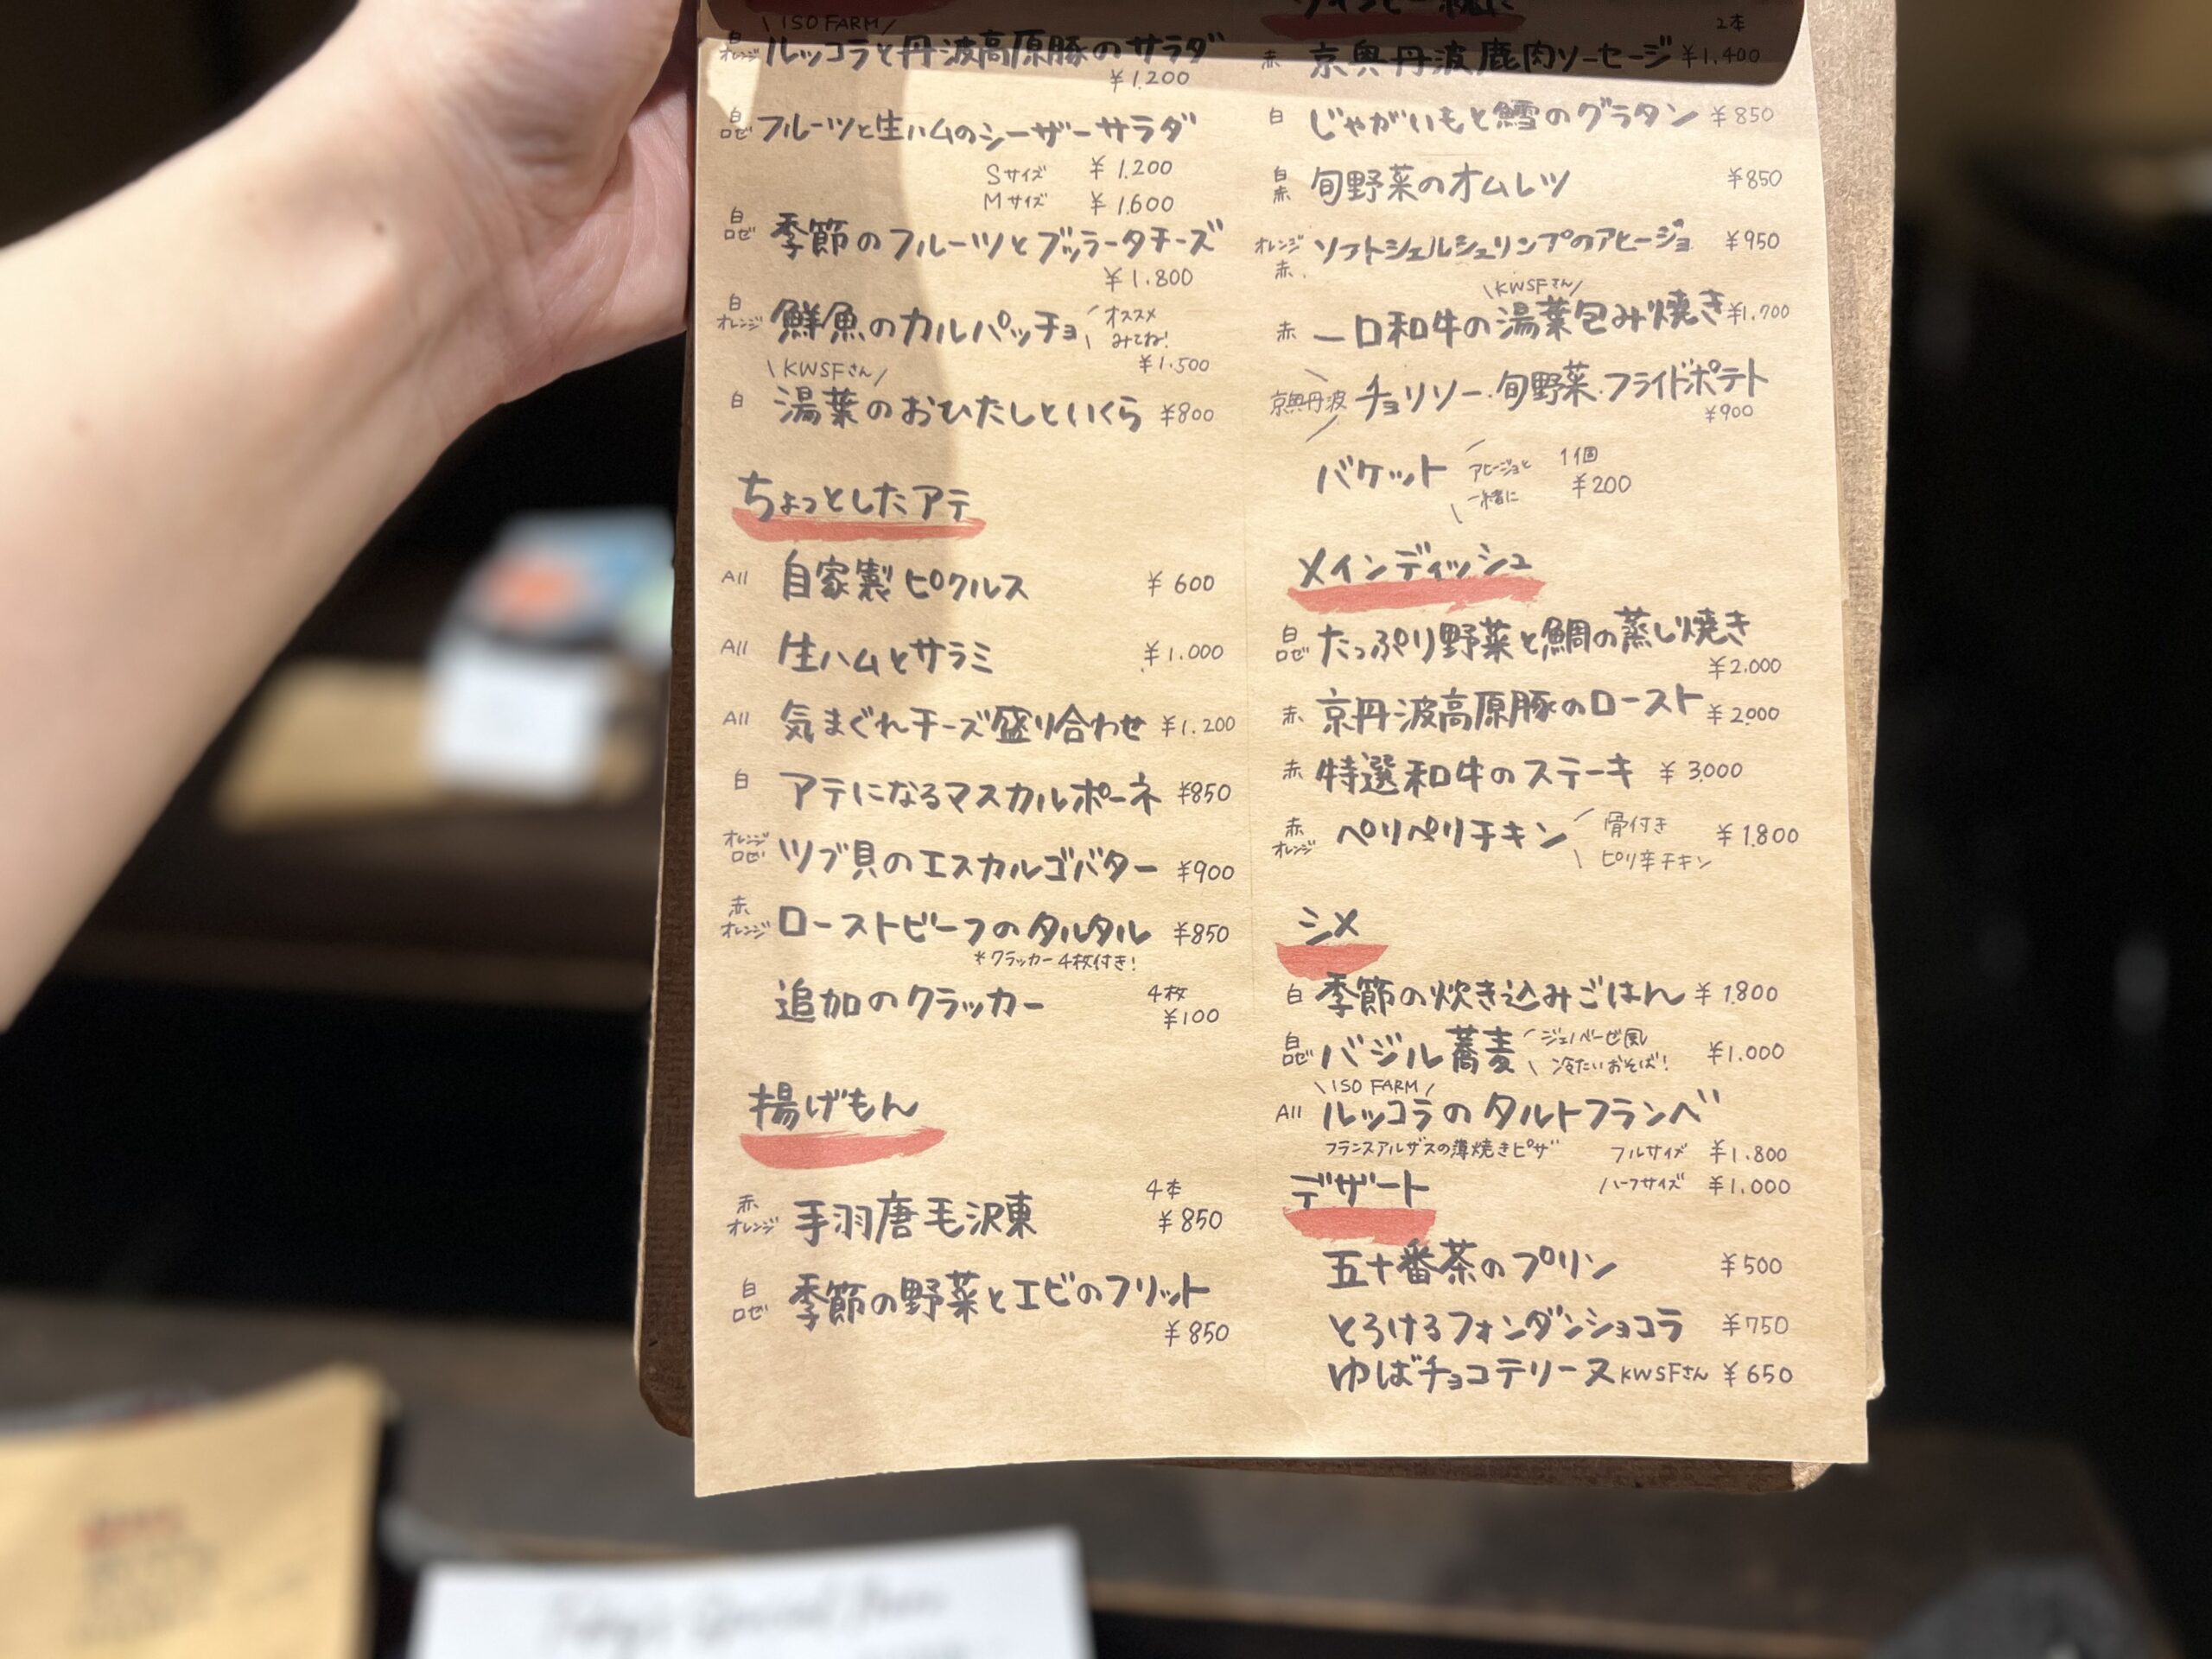 \ ISO FARM /
白
オレンジ ルッコラと丹波高原豚のサラダ
¥1.200
白
ロゼ フルーツと生ハムのシーザーサラダ
Sサイズ ¥1.200
Mサイズ ¥1.600
白
ロゼ 季節のフルーツとブッラータチーズ
¥1.800
白
オレンジ 鮮魚のカルパッチョ オススメ
みてね!
¥1.500
\ KWSFさん /
白 湯葉のおひたしといくら ¥800
ちょっとしたアテ
All 自家製ピクルス ¥600
All 生ハムとサラミ ¥1.000
All 気まぐれチーズ盛り合わせ ¥1.200
白 アテになるマスカルポーネ ¥850
オレンジ
ロゼ ツブ貝のエスカルゴバター ¥900
赤
オレンジ ローストビーフのタルタル ¥850
*クラッカー4枚付き!
追加のクラッカー 4枚
¥100
揚げもん
赤
オレンジ 手羽唐毛沢東 4本
¥850
白
ロゼ 季節の野菜とエビのフリット
¥850
2本
赤 京奥丹波鹿肉ソーセージ ¥1,400
白 じゃがいもと鱈のグラタン ¥850
白
赤 旬野菜のオムレツ ¥850
オレンジ
赤 ソフトシェルシュリンプのアヒージョ ¥950
\KWSFさん/
赤 一口和牛の湯葉包み焼き ¥1.700
京奥丹波 チョリソー・旬野菜・フライドポテト
¥900
バケット アヒージョと
一緒に 1個
¥200
メインディッシュ
白
ロゼ たっぷり野菜と鯛の蒸し焼き
¥2.000
赤 京丹波高原豚のロースト ¥2000
赤 特選和牛のステーキ ¥3000
赤
オレンジ ペリペリチキン 骨付き
ピリ辛チキン ¥1.800
シメ
白 季節の炊き込みごはん ¥1800
白
ロゼ バジル蕎麦 ジェノベーゼ風
冷たいおそば! ¥1.000
\ ISO FARM /
All ルッコラのタルトフランベ
フランスアルザスの薄焼きピザ フルサイズ ¥1.800
ハーフサイズ ¥1.000
デザート
五十番茶のプリン ¥500
とろけるフォンダンショコラ ¥750
ゆばチョコテリーヌ KWSFさん ¥650